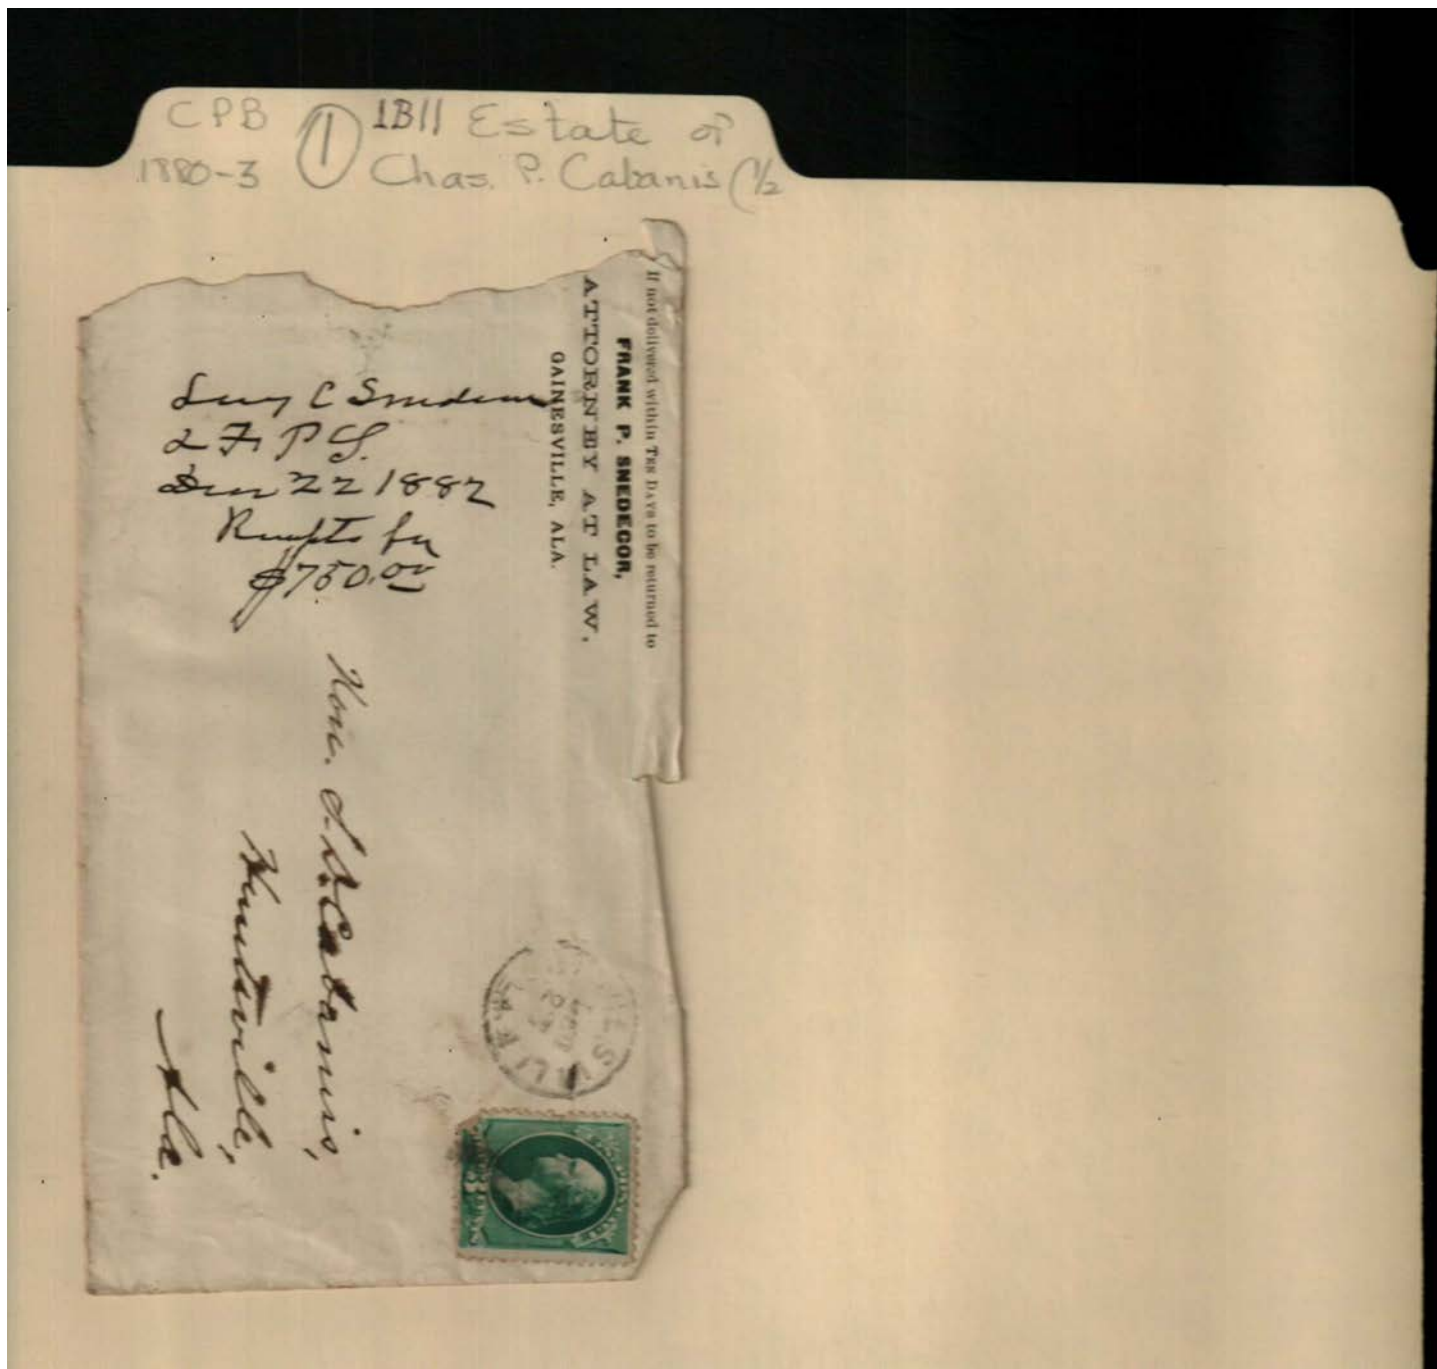 CPB ① 1B11 Estate of
1880-3 Chas. P. Cabanis (1/2
If not delivered within TEN DAYS to be returned to
FRANK P. SNEDECOR,
ATTORNEY AT LAW,
GAINESVILLE, ALA.
Lucy C Snedecor
& F. P S.
22 1882
Receipts for
$750.00
Hon. S. D. Cabanis,
Huntsville,
Ala.